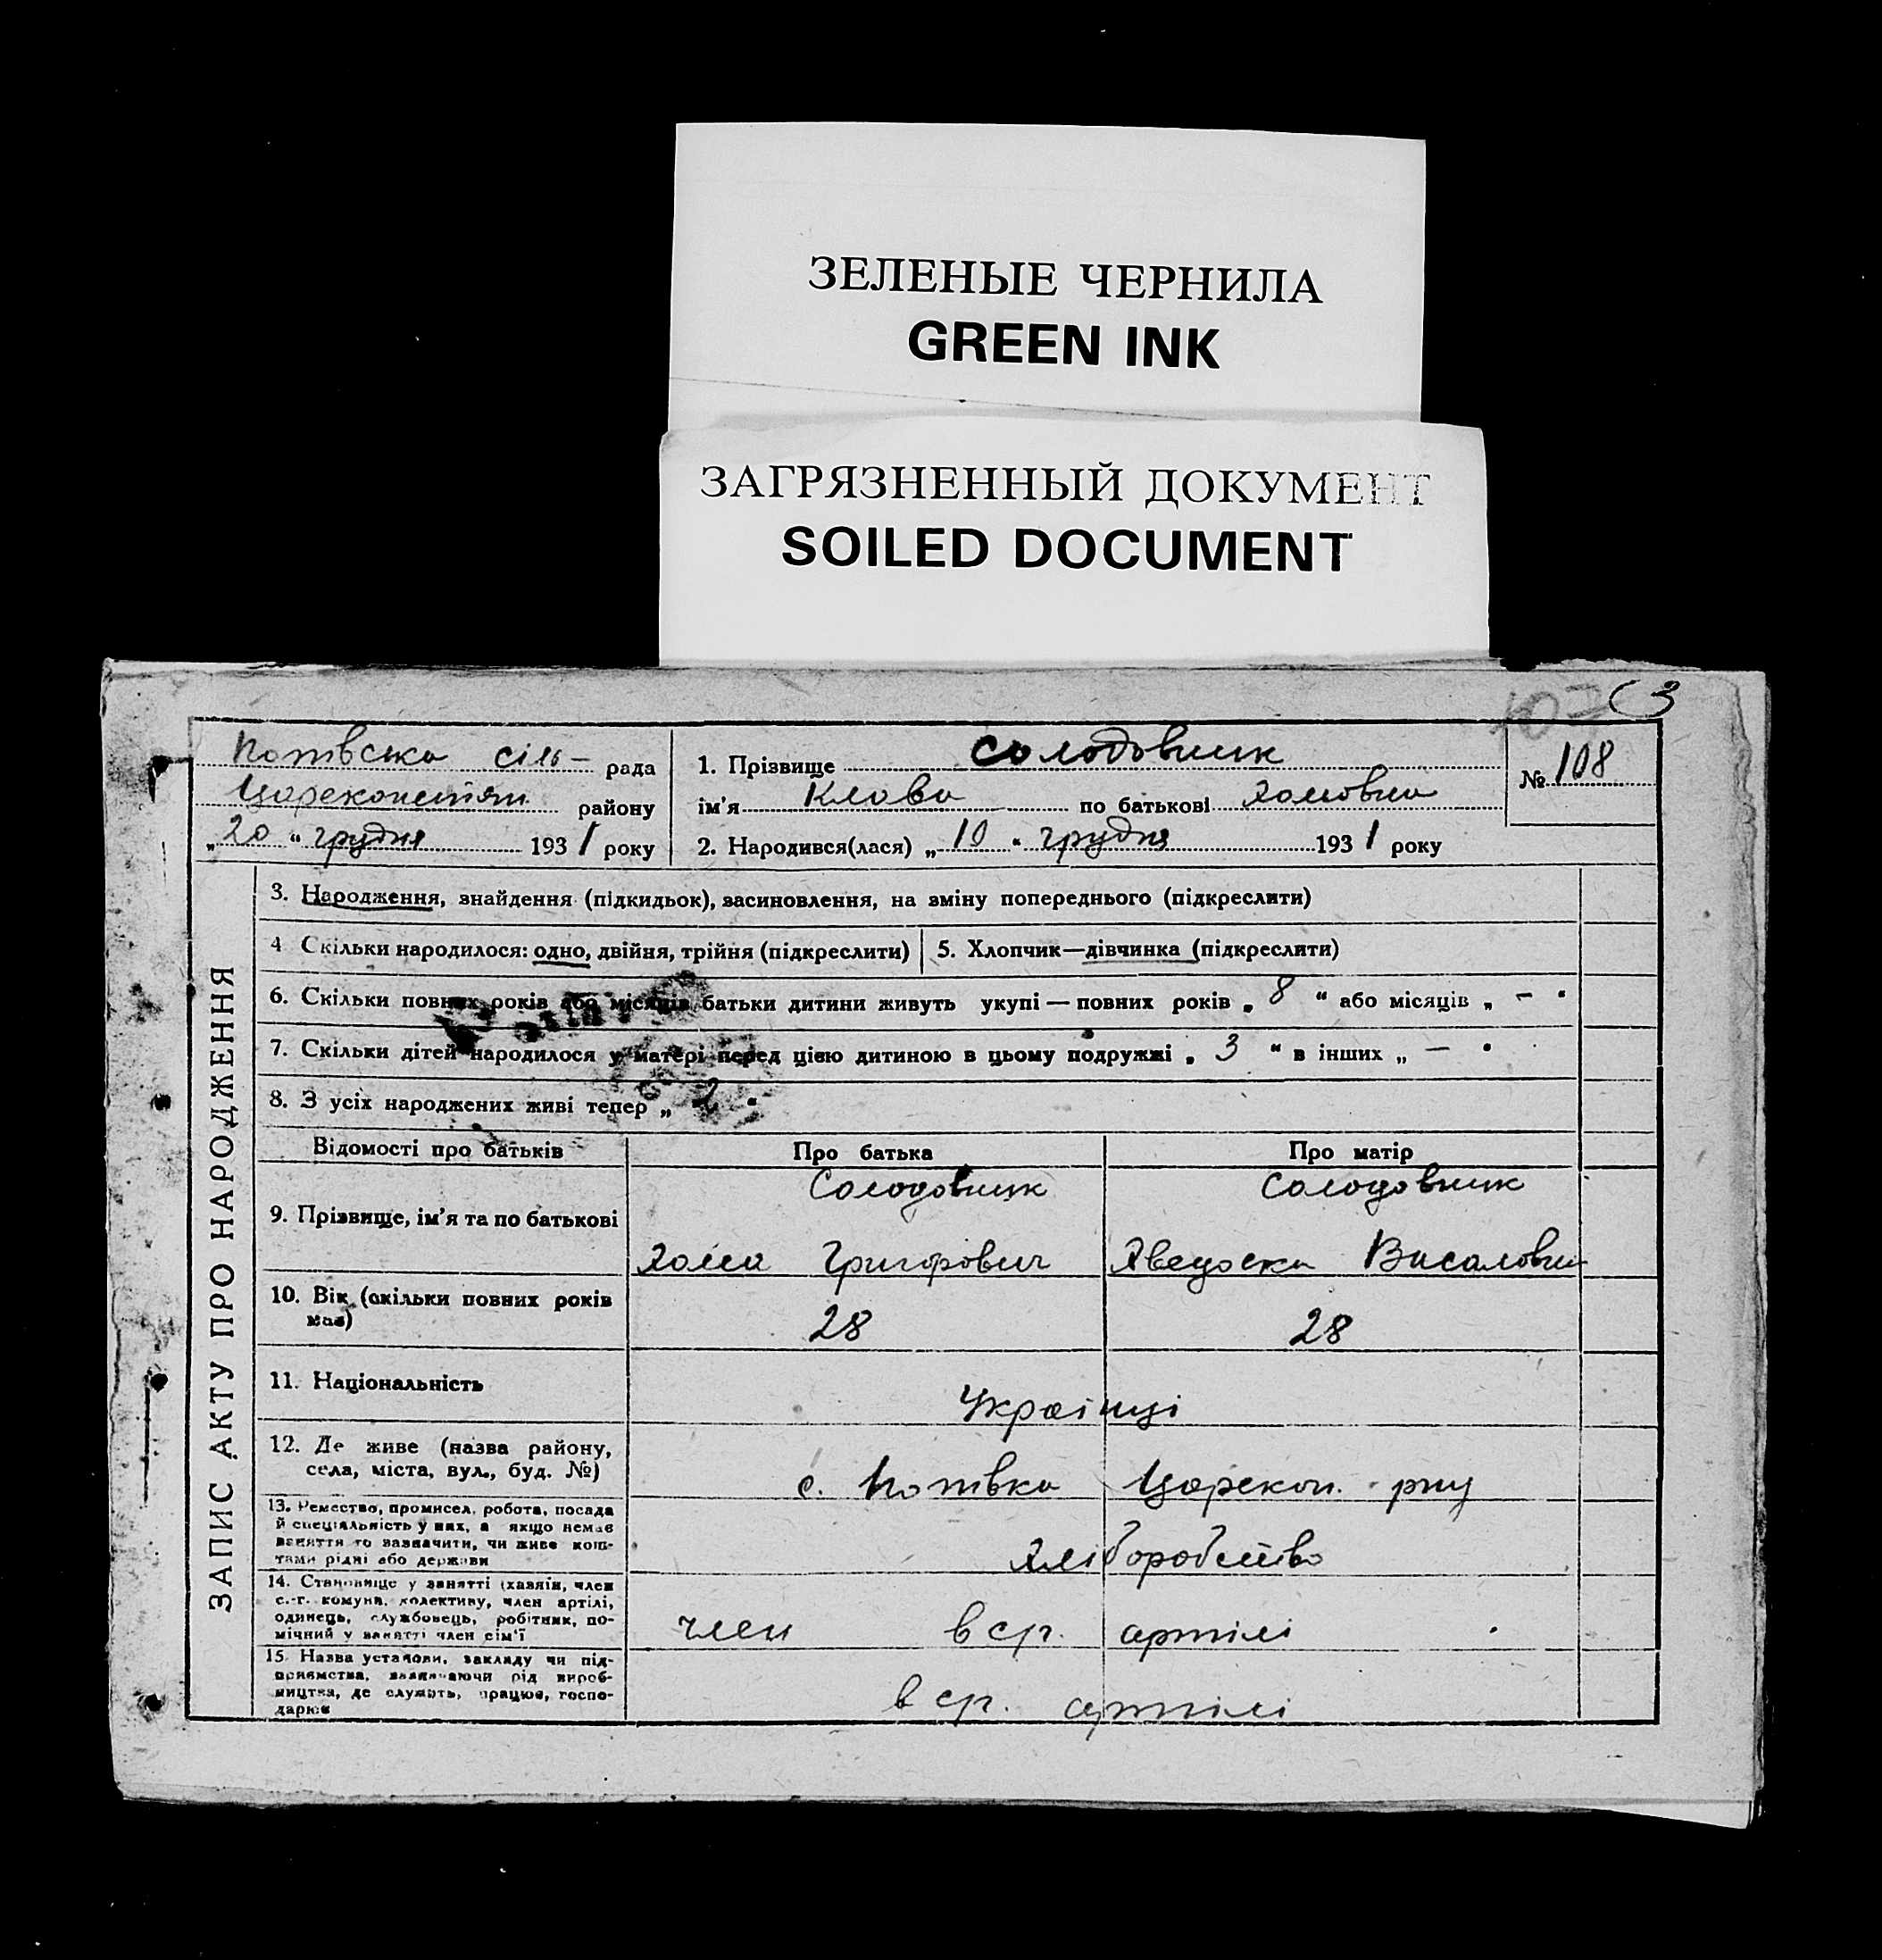 ЗЕЛЕНЫЕ ЧЕРНИЛА
GREEN INK
ЗАГРЯЗНЕННЫЙ ДОКУМЕНТ
SOILED DOCUMENT
107 63
ЗАПИС АКТУ ПРО НАРОДЖЕННЯ
Попівська сіль- рада
Цареконстян району
„20“ грудня 1931 року
1. Прізвище Солодовник
ім'я Клава по батькові Хомовна
2. Народився(лася) „10“ грудня 1931 року
№ 108
3. Народження, знайдення (підкидьок), засиновлення, на зміну попереднього (підкреслити)
4 Скільки народилося: одно, двійня, трійня (підкреслити)
5. Хлопчик—дівчинка (підкреслити)
6. Скільки повних років або місяців батьки дитини живуть укупі — повних років „ 8 “ або місяців „ – “
7. Скільки дітей народилося у матері перед цією дитиною в цьому подружжі „ 3 “ в інших „ — “
8. З усіх народжених живі тепер „ 2 “
Відомості про батьків Про батька Про матір
9. Прізвище, ім'я та по батькові
Солодовник
Хома Григорович
Солодовник
Василовна
10. Вік (скільки повних років має)
28 28
11. Національність
Українці
12. Де живе (назва району,
села, міста, вул., буд. №)
с. Попівка Царекон. р-ну
13. Ремество, промисел, робота, посада
й спеціяльність у них, а якщо немає
заняття то зазначити, чи живе кош-
тами рідні або держави
хліборобство
14. Становище у занятті (хазяїн, член
с.-г. комуни, колективу, член артілі,
одинець, службовець, робітник, по-
мічний у занятті член сім'ї
член в ср. артілі
15. Назва установи, закладу чи під-
приємства, зазначаючи рід вироб-
ництва, де служить, працює, госпо-
дарює
в ср. артілі